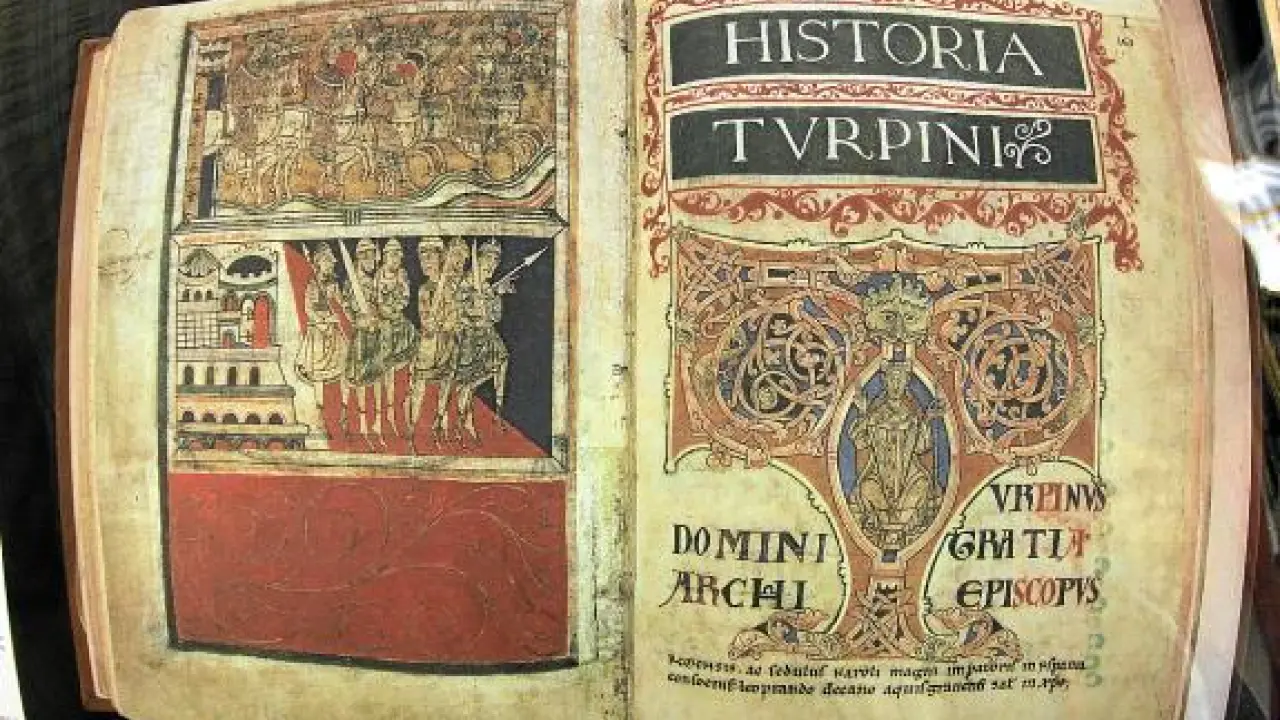 HISTORIA
TVRPINI
VRPINVS
DOMINI GRATIA
ARCHI EPISCOPVS
REMENSIS. ac sedulus Karoli magni impatoris in Hyspania
consocius leoprando decano aquisgranensi sal in xpo;